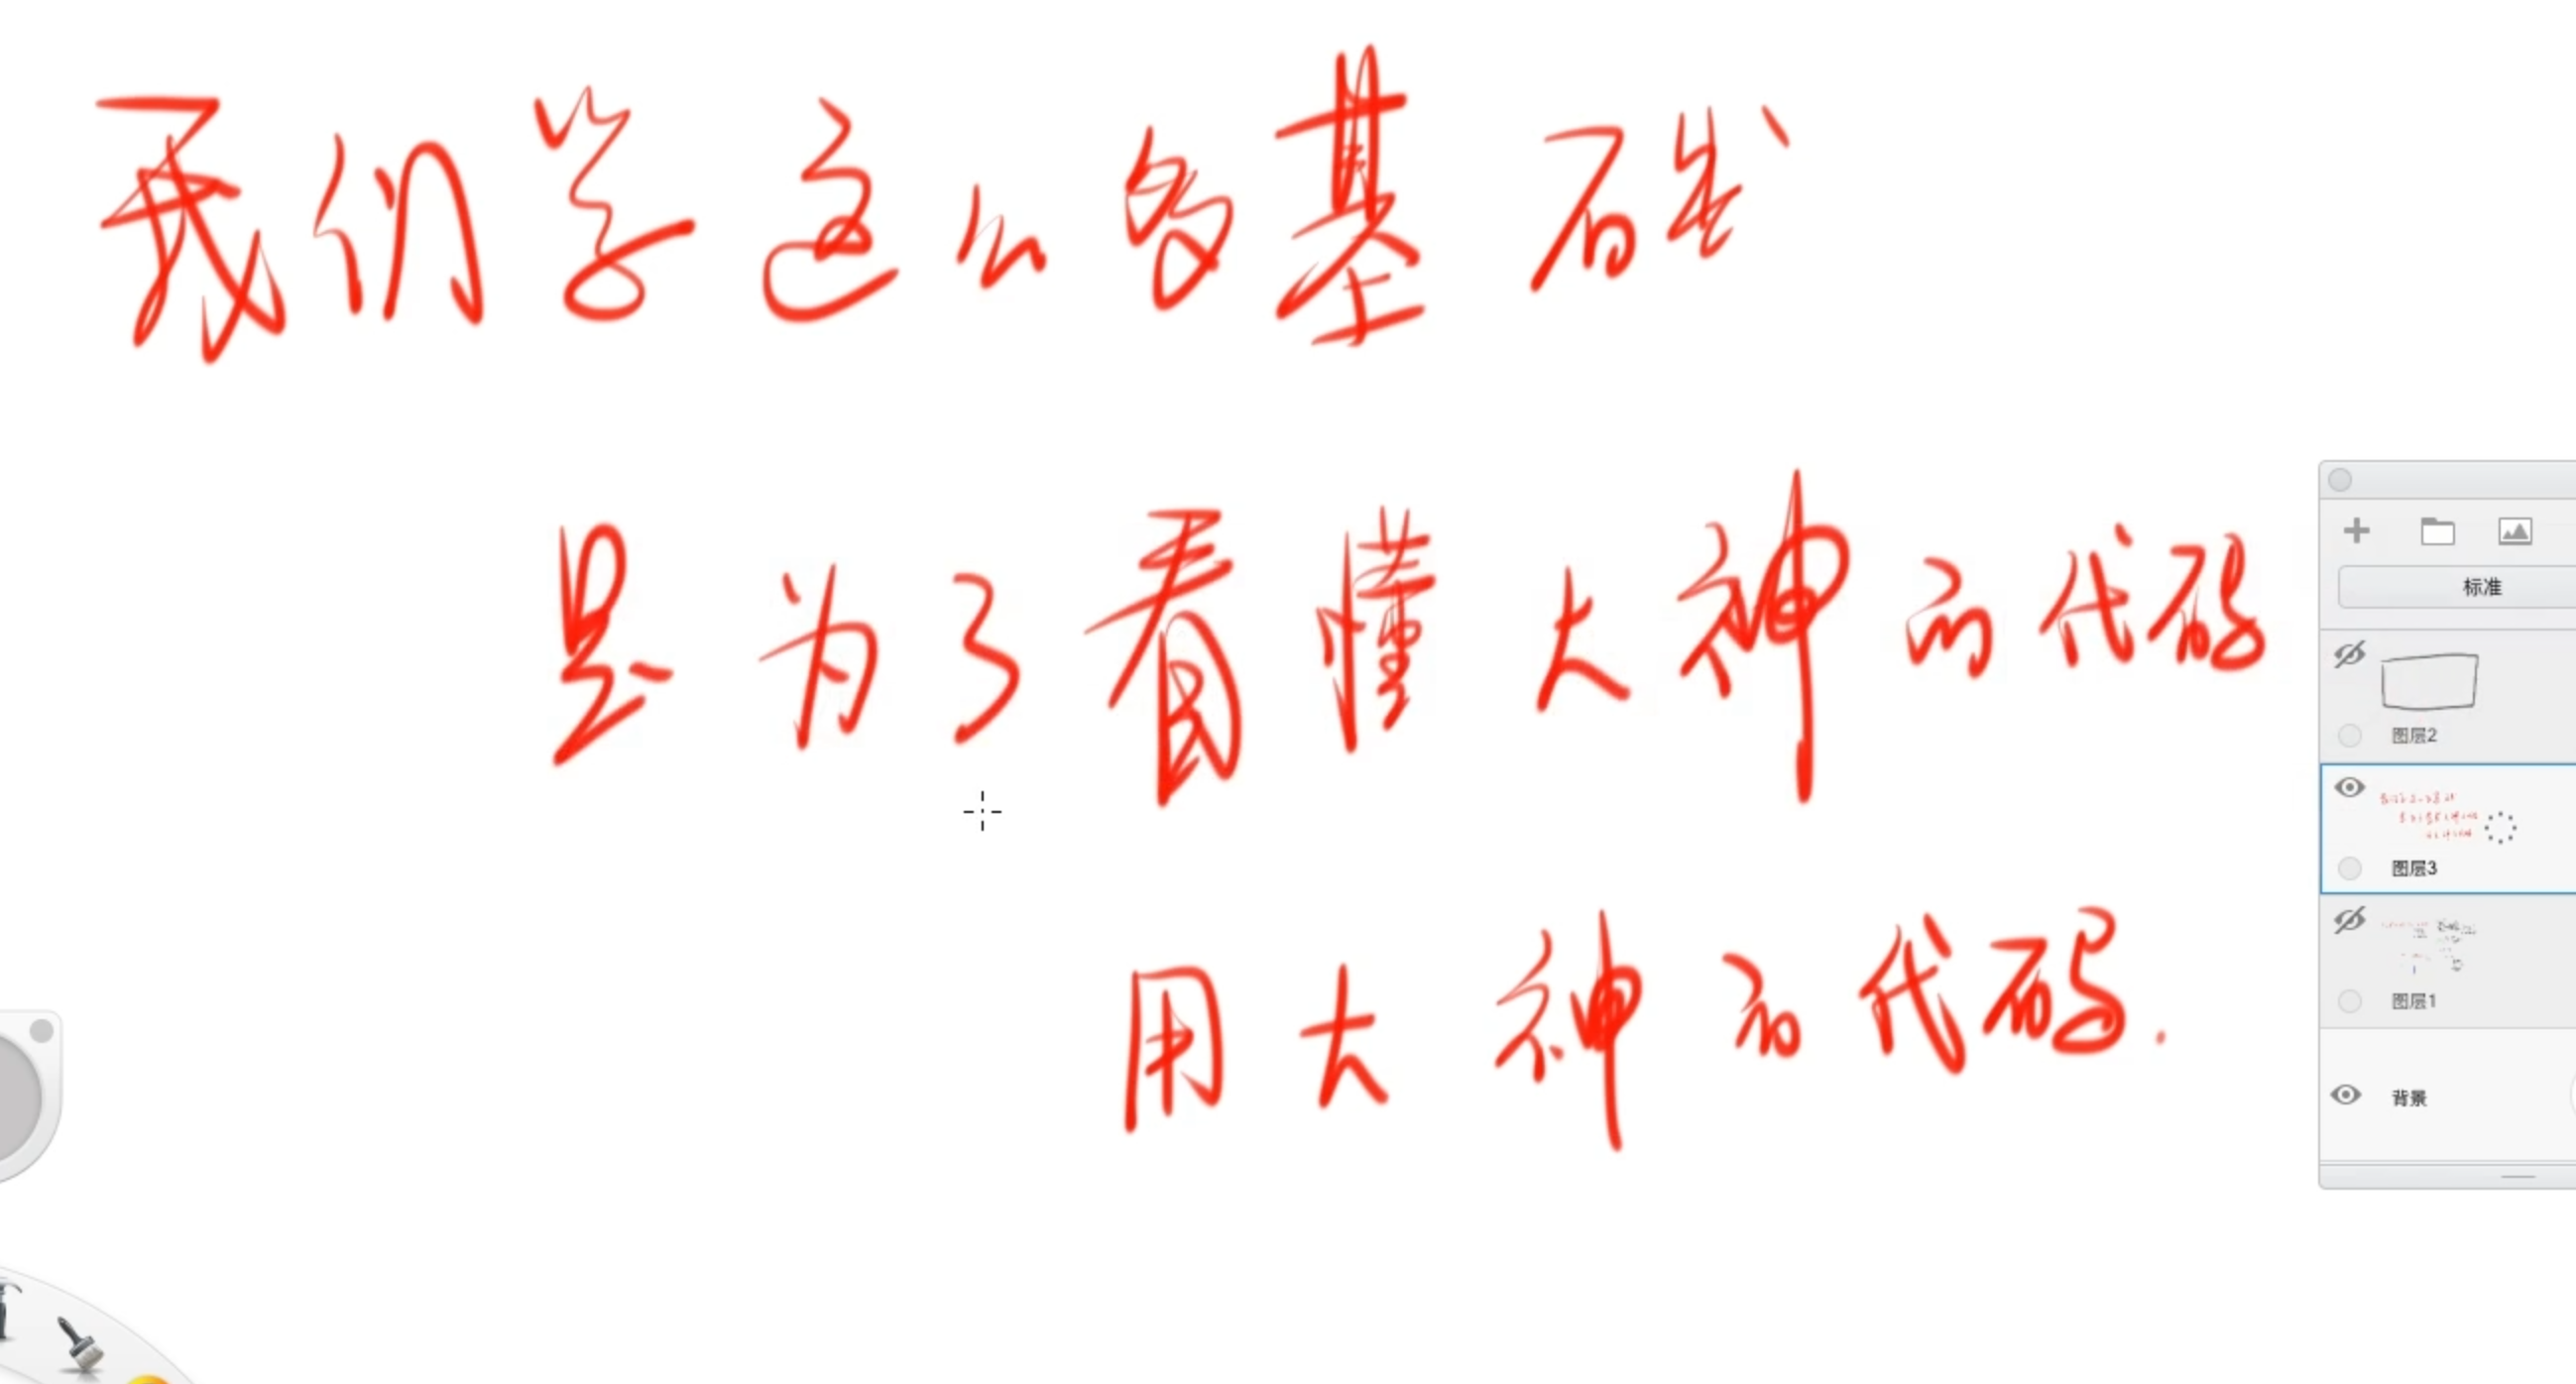 我们学这么多基础
是为了看懂大神的代码
用大神的代码.
标准
图层2
图层3
图层1
背景